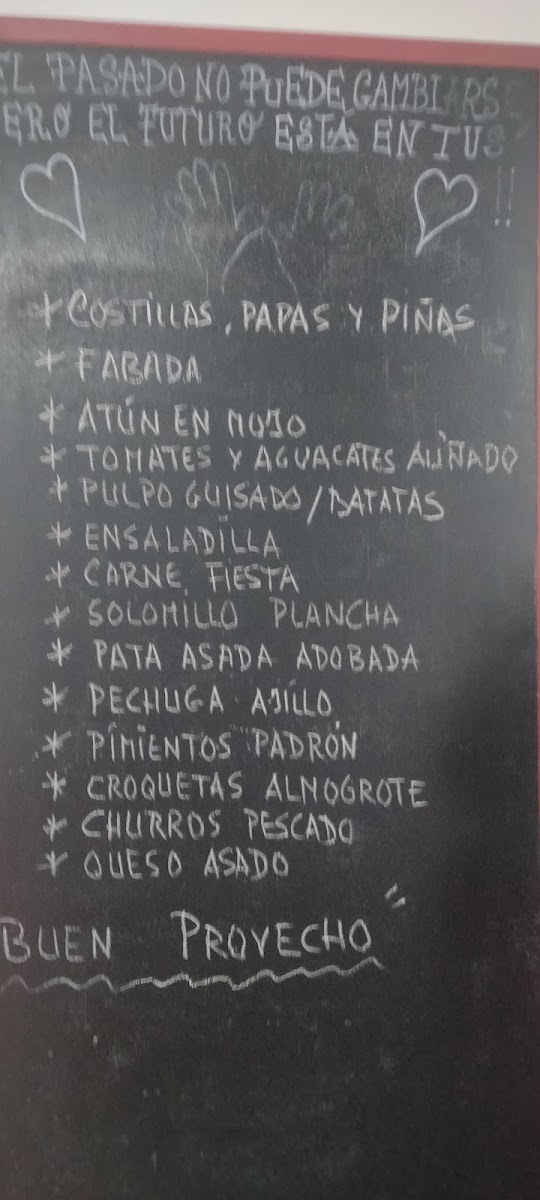 EL PASADO NO PUEDE GAMBIARSE
ERO EL FUTURO ESTÁ EN TUS
!!
* COSTILLAS, PAPAS Y PIÑAS
* FABADA
* ATÚN EN MOJO
* TOMATES Y AGUACATES ALIÑADO
* PULPO GUISADO/BATATAS
* ENSALADILLA
* CARNE FIESTA
* SOLOMILLO PLANCHA
* PATA ASADA ADOBADA
* PECHUGA AJILLO
* PIMIENTOS PADRÓN
* CROQUETAS ALMOGROTE
* CHURROS PESCADO
* QUESO ASADO
BUEN PROVECHO